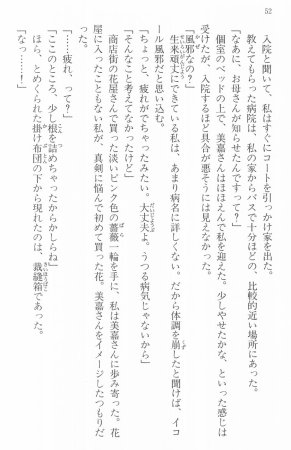 52
入院と聞いて、私はすぐにコートを引っかけ家を出た。
教えてもらった病院は、私の家からバスで十分ほどの、比較的近い場所にあった。
「なあに、お母さんが知らせたんですって？」
個室のベッドの上で、美嘉さんはほほえんで私を迎えた。少しやせたかな、といった感じは
受けたが、入院するほど具合が悪そうには見えなかった。
「風邪なの？」
生来頑丈にできている私は、あまり病名に詳しくない。だから体調を崩したと聞けば、イコ
ール風邪だと思い込む。
「ちょっと、疲れがでちゃったみたい。大丈夫よ。うつる病気じゃないから」
「そんなこと考えてなかったけど」
商店街の花屋さんで買った淡いピンク色の薔薇一輪を手に、私は美嘉さんに歩み寄った。花
屋に入ったこともない私が、真剣に悩んで初めて買った花。美嘉さんをイメージしたつもりだ
った。
「……疲れ、って？」
「ここのところ、少し根を詰めちゃったからかしらね」
ほら、とめくられた掛け布団の下から現れたのは、裁縫箱であった。
「なっ……！」